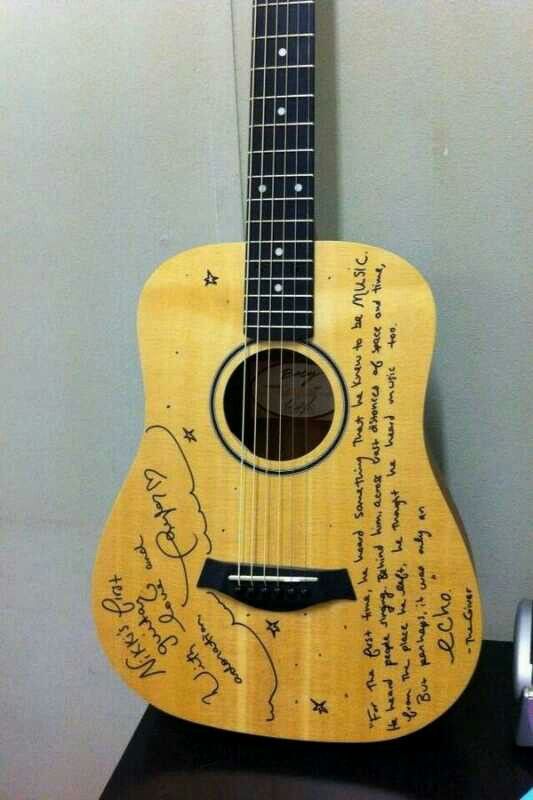 Nikki's first
guitar
With love and
adoration
Taylor
"For the first time, he heard something that he knew to be MUSIC.
He heard people singing. Behind him, across vast distances of space and time,
from the place he left, he thought he heard music too.
But perhaps, it was only an
echo."
-The Giver
Baby